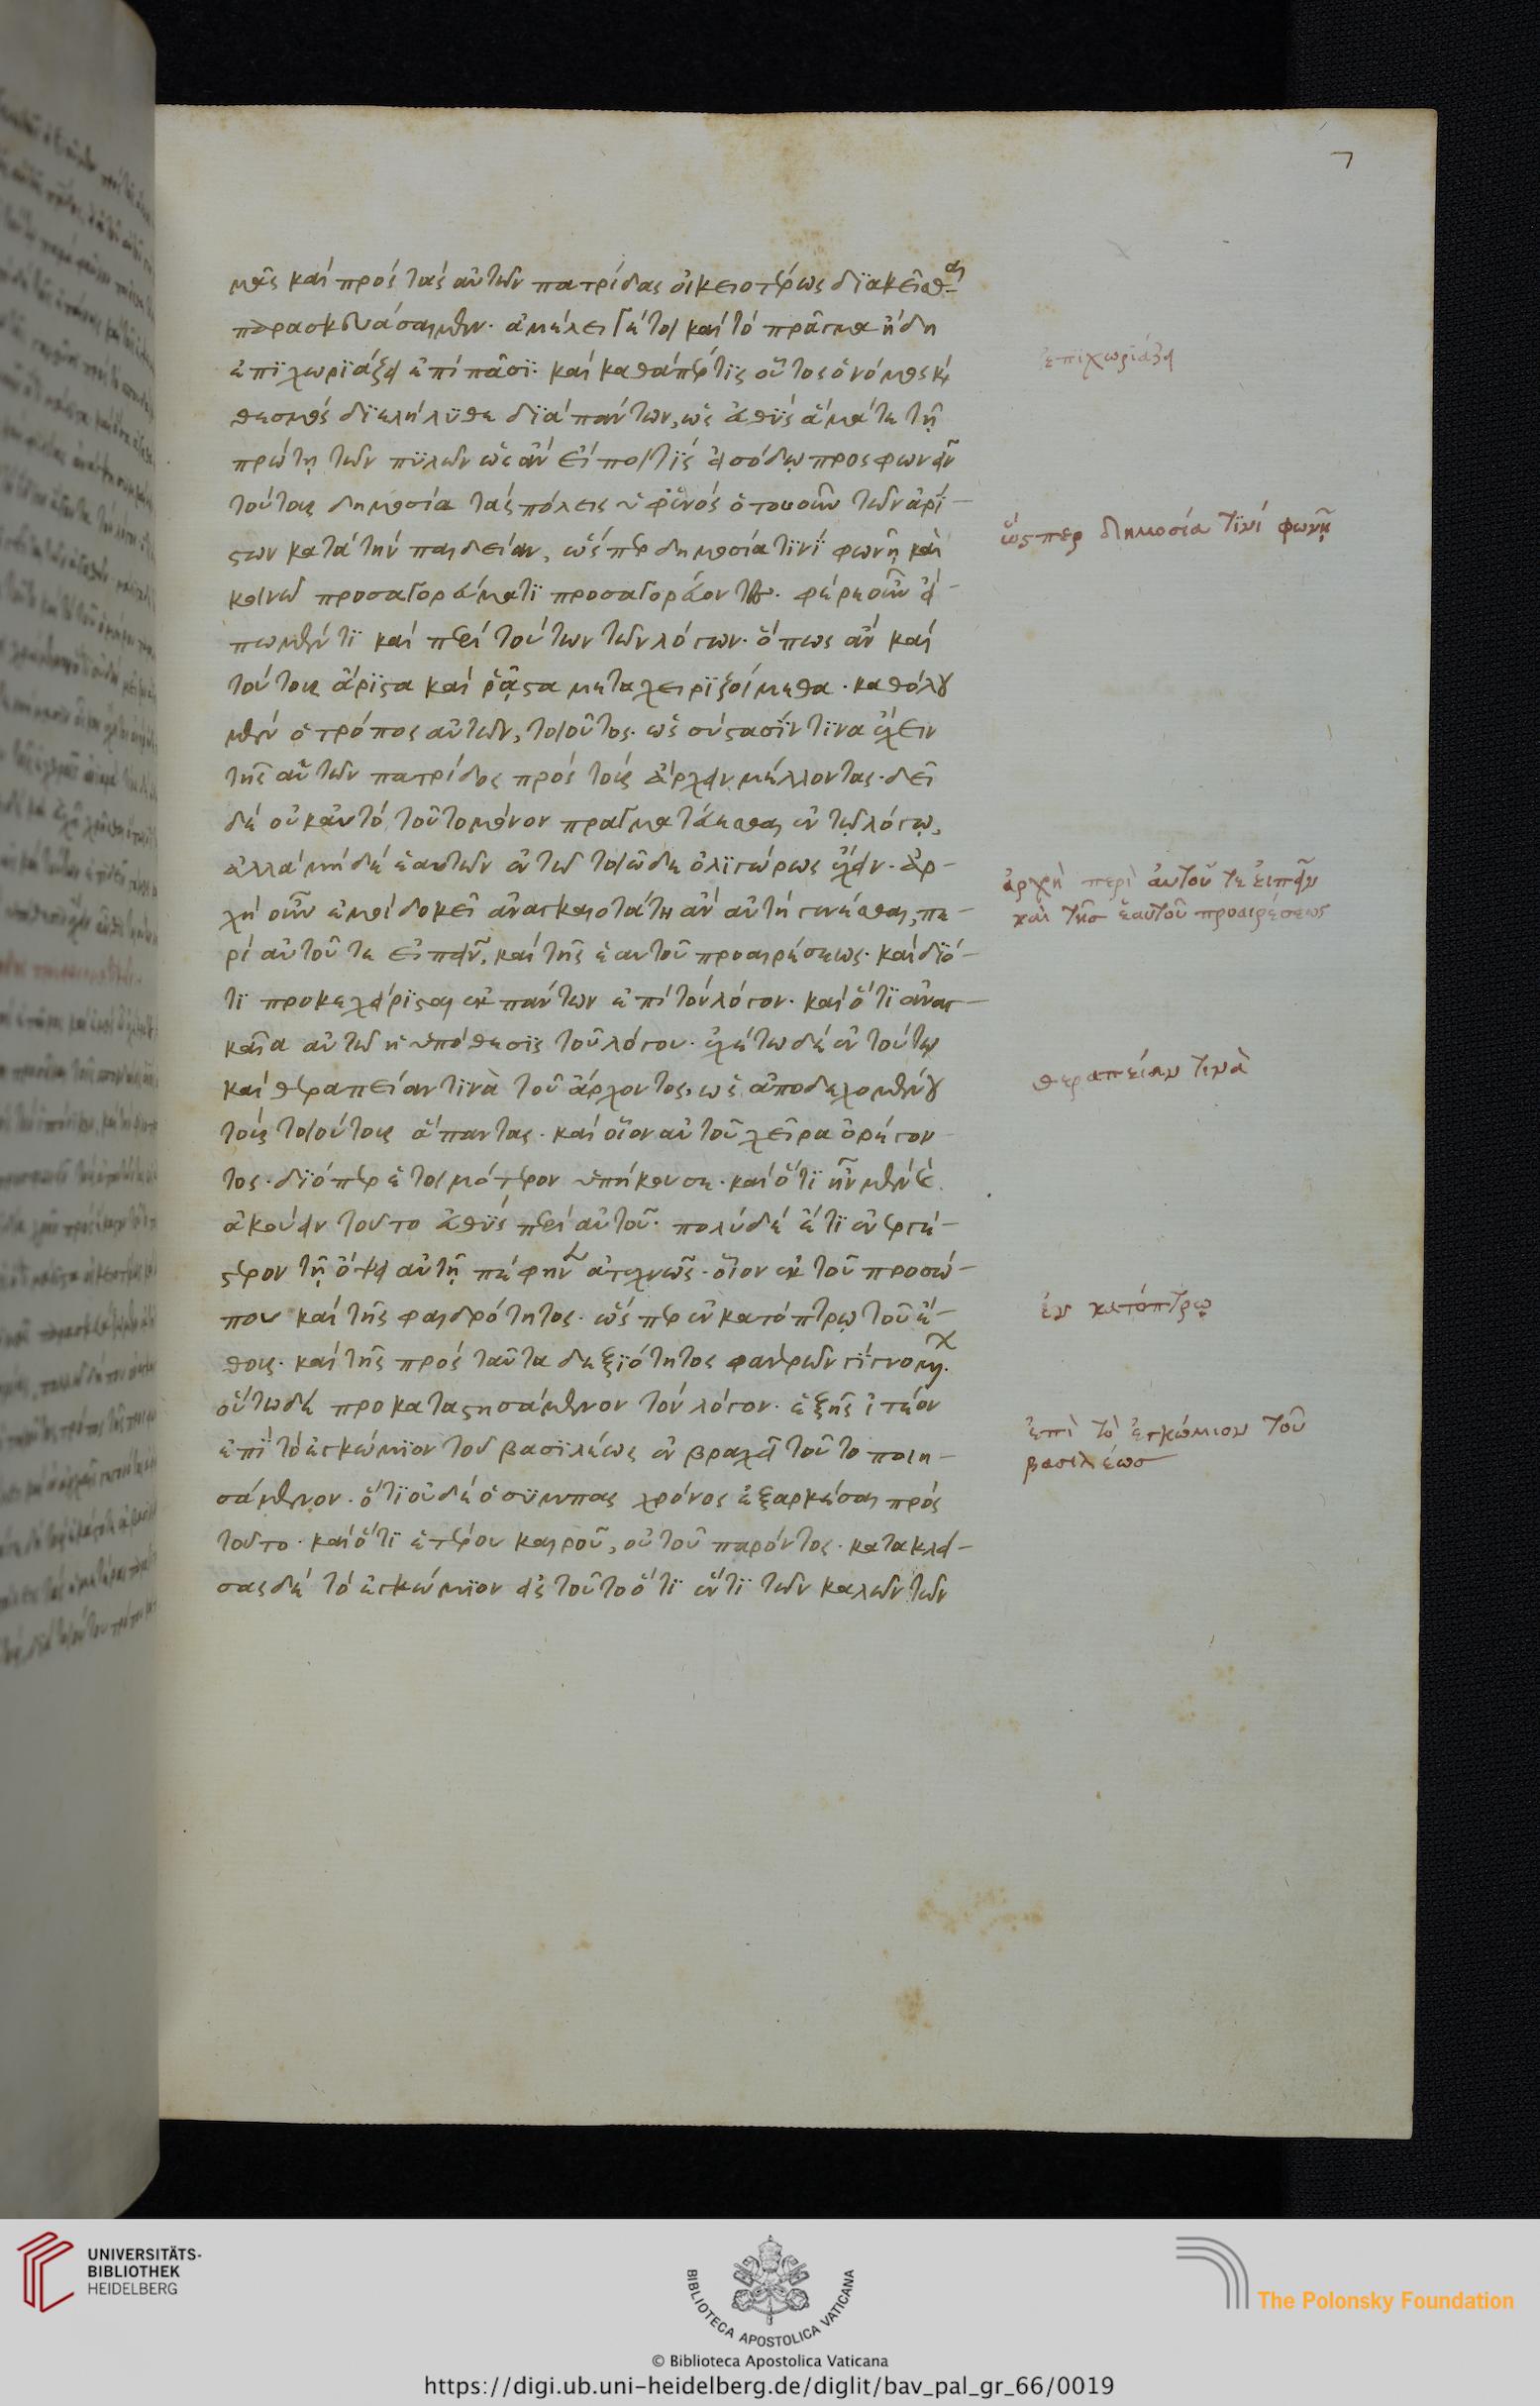 7
μᾶς καὶ πρὸς τὰς αὐτῶν πατρίδας οἰκειοτέρως διακεῖσθαι
παρασκευάσαιμεν. ἀμέλει γέ τοι καὶ τὸ πρᾶγμα ἤδη
ἐπιχωριάζει ἐπὶ πᾶσι. καὶ καθάπέρ τις οὗτος ὁ νόμος καὶ
θεσμὸς διελήλυθε διὰ πάντων, ὡς εὐθὺς ἅμα τε τῇ
πρώτῃ τῶν πυλῶν ὡς ἂν εἴποι τὶς εἰσόδῳ προσφωνεῖν
τούτοις δημοσία τὰς πόλεις ὑφ' ἑνὸς ὁτουοῦν τῶν ἀρί-
στων κατὰ τὴν παιδείαν, ὥσπερ δημοσία τινὶ φωνῇ καὶ
κοινῷ προσαγορεύματι προσαγορεύοντος. φέρε οὖν εἴ-
πωμέν τι καὶ περὶ τούτων τῶν λόγων. ὅπως ἂν καὶ
τούτοις ἄριστα καὶ ῥᾷστα μεταχειριζοίμεθα. καθόλου
μὲν ὁ τρόπος αὐτῶν, τοιοῦτος. ὡς σύστασίν τινα ἔχειν
τῆς αὑτῶν πατρίδος πρὸς τοὺς ἄρχειν μέλλοντας. δεῖ
δὲ οὐκ αὐτὸ τοῦτο μόνον πραγματεύεσθαι ἐν τῷ λόγῳ,
ἀλλὰ μηδὲ ἑαυτῶν ἐν τῷ τοιῷδε ὀλιγώρως ἔχειν. ἀρ-
χὴ οὖν ἐμοὶ δοκεῖ ἀναγκαιοτάτη ἂν αὐτὴ γενέσθαι, πε-
ρὶ αὐτοῦ τε εἰπεῖν, καὶ τῆς ἑαυτοῦ προαιρέσεως. καὶ διό-
τι προκεχείρισται ἐκ πάντων ἐπὶ τὸν λόγον. καὶ ὅτι ἀναγ-
καῖα αὐτῷ ἡ ὑπόθεσις τοῦ λόγου. ἐχέτω δὲ ἐν τούτῳ
καὶ θεραπείαν τινὰ τοῦ ἄρχοντος, ὡς ἀποδεχομένου
τοὺς τοιούτους ἅπαντας. καὶ οἷον αὐτοῦ χεῖρα ὀρέγον
τος. διόπερ ἑτοιμότερον ὑπήκουσε. καὶ ὅτι ἦν μὲν
ἀκούειν τοῦτο εὐθὺς περὶ αὐτοῦ. πολὺ δὲ ἔτι ἐνεργέ-
στερον τῇ ὄψει αὐτῇ πέφηνεν ἀτεχνῶς. οἷον ἐκ τοῦ προσώ-
που καὶ τῆς φαιδρότητος. ὥσπερ ἐν κατόπτρῳ τοῦ ἤ-
θους. καὶ τῆς πρὸς ταῦτα δεξιότητος φανερῶν γιγνομένης.
οὕτω δὲ προκαταστησάμενον τὸν λόγον. ἑξῆς ἰτέον
ἐπὶ τὸ ἐγκώμιον τοῦ βασιλέως ἐν βραχεῖ τοῦτο ποιη-
σάμενον. ὅτι οὐδὲ ὁ σύμπας χρόνος ἐξαρκέσαι πρὸς
τοῦτο. καὶ ὅτι ἑτέρου καιροῦ, οὐ τοῦ παρόντος. κατακλεί-
σας δὲ τὸ ἐγκώμιον εἰς τοῦτο ὅτι ἕν τι τῶν καλῶν τῶν
ἐπιχωριάζει
ὥσπερ δημοσία τινὶ φωνῇ
ἀρχὴ περὶ αὐτοῦ τε εἰπεῖν
καὶ τῆς ἑαυτοῦ προαιρέσεως
θεραπείαν τινὰ
ἐν κατόπτρῳ
ἐπὶ τὸ ἐγκώμιον τοῦ
βασιλέωσ
UNIVERSITÄTS-
BIBLIOTHEK
HEIDELBERG
BIBLIOTECA APOSTOLICA VATICANA
The Polonsky Foundation
© Biblioteca Apostolica Vaticana
https://digi.ub.uni-heidelberg.de/diglit/bav_pal_gr_66/0019